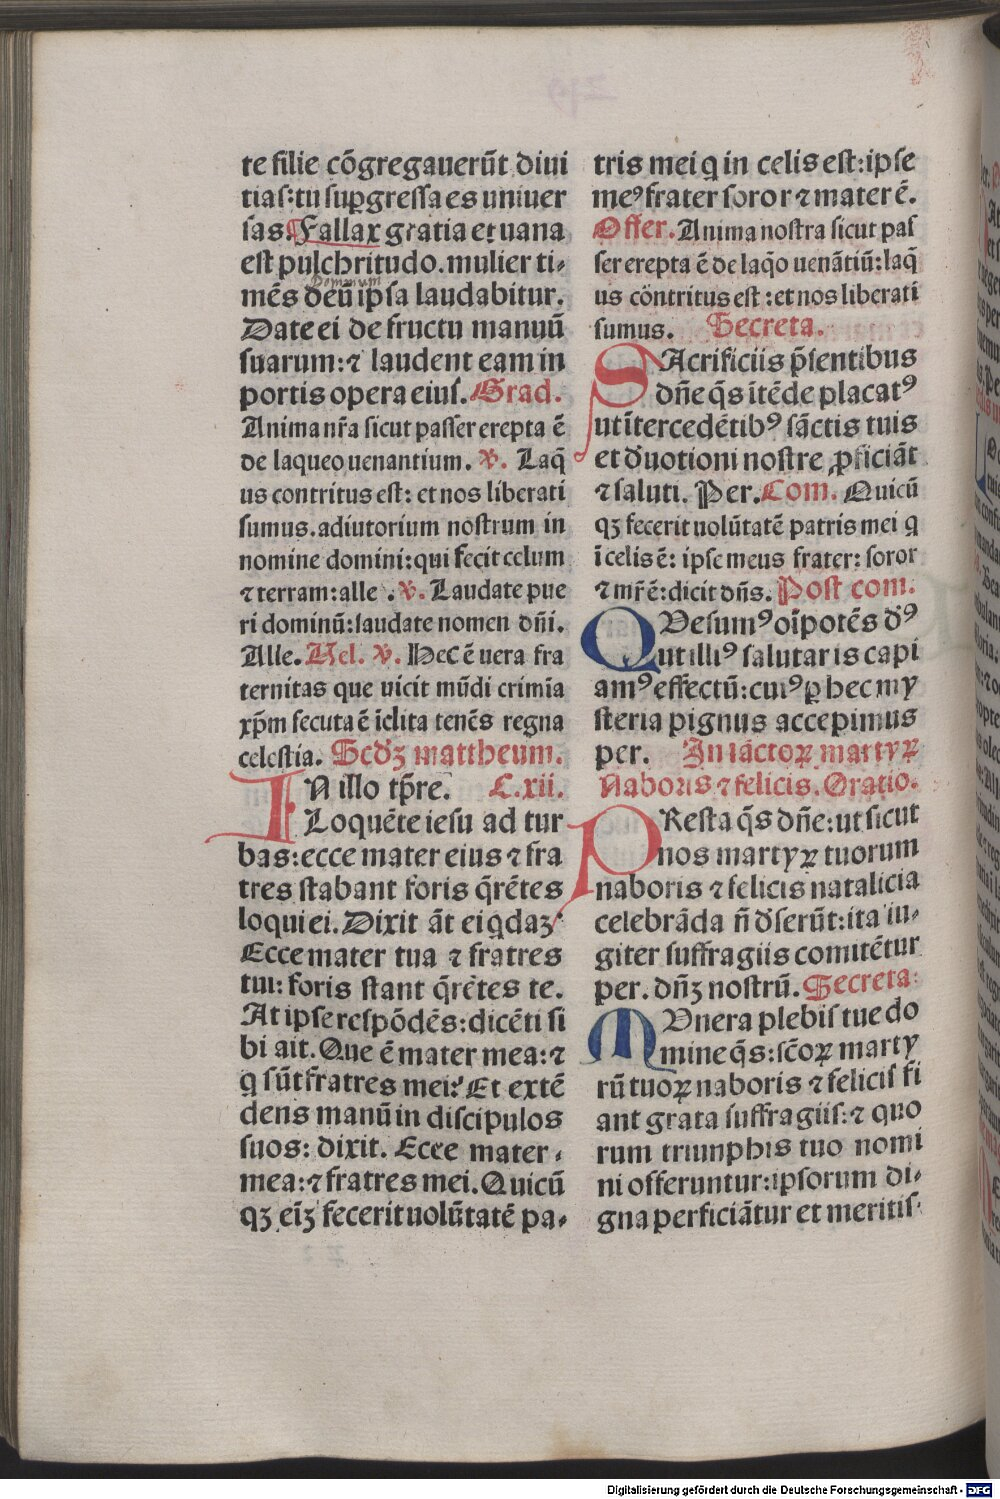 te filie cōgregauerūt diui
tias: tu suꝑgressa es uniuer
sas. Fallax gratia et uana
est pulchritudo. mulier ti-
Dominum
mēs deū ipsa laudabitur.
Date ei de fructu manuū
suarum: ⁊ laudent eam in
portis opera eius. Grad.
Anima nr̄a sicut passer erepta ē
de laqueo uenantium. ℣. Laq̄
us contritus est: et nos liberati
sumus. adiutorium nostrum in
nomine domini: qui fecit celum
⁊ terram: alle . ℣. Laudate pue
ri dominū: laudate nomen dn̄i.
Alle. Ael. ℣. Hec ē uera fra
ternitas que uicit mūdi crimīa
xp̄m secuta ē īclita tenēs regna
celestia. Scd'ꝫ mattheum.
IN illo tp̄re. C. xii.
Loquēte iesu ad tur
bas: ecce mater eius ⁊ fra
tres stabant foris q̄rētes
loqui ei. Dixit āt ei qdaꝫ
Ecce mater tua ⁊ fratres
tui: foris stant q̄rētes te.
At ipse respōdēs: dicēti si
bi ait. Que ē mater mea: ⁊
q sūt fratres mei? Et extē
dens manū in discipulos
suos: dixit. Ecce mater-
mea: ⁊ fratres mei. Quicū
qꝫ eīꝫ fecerit uolūtatē pa-
tris mei q in celis est: ipse
meꝰ frater soror ⁊ mater ē.
Offer. Anima nostra sicut pas
ser erepta ē de laq̄o uenātiū: laq̄
us cōntritus est: et nos liberati
sumus. Secreta.
SAcrificiis p̄sentibus
dn̄e q̄s ītēde placatꝰ
ut ītercedētibꝰ sāctis tuis
et d'uotioni nostre ꝓficiāt
⁊ saluti. Per. Com. Quicū
qꝫ fecerit uolūtatē patris mei q
ī celis ē: ipse meus frater: soror
⁊ mr̄ ē: dicit dn̄s. Post com.
QVesumꝰ oīpotēs d'ꝰ
ut illiꝰ salutaris capi
amꝰ effectū: cuiꝰ ꝑ hec my
steria pignus accepimus
per. In sāctoꝝ martyꝝ
Naboris ⁊ felicis. Oratio.
PResta q̄s dn̄e: ut sicut
nos martyꝝ tuorum
naboris ⁊ felicis natalicia
celebrāda n̄ d'serūt: ita iu-
giter suffragiis comitētur
per. dn̄ꝫ nostrū. Secreta:
MVnera plebis tue do
mine q̄s: sc̄oꝝ marty
rū tuoꝝ naboris ⁊ felicis fi
ant grata suffragiis: ⁊ quo
rum triunphis tuo nomi
ni offeruntur: ipsorum di-
gna perficiātur et meritis.
Digitalisierung gefördert durch die Deutsche Forschungsgemeinschaft - DFG